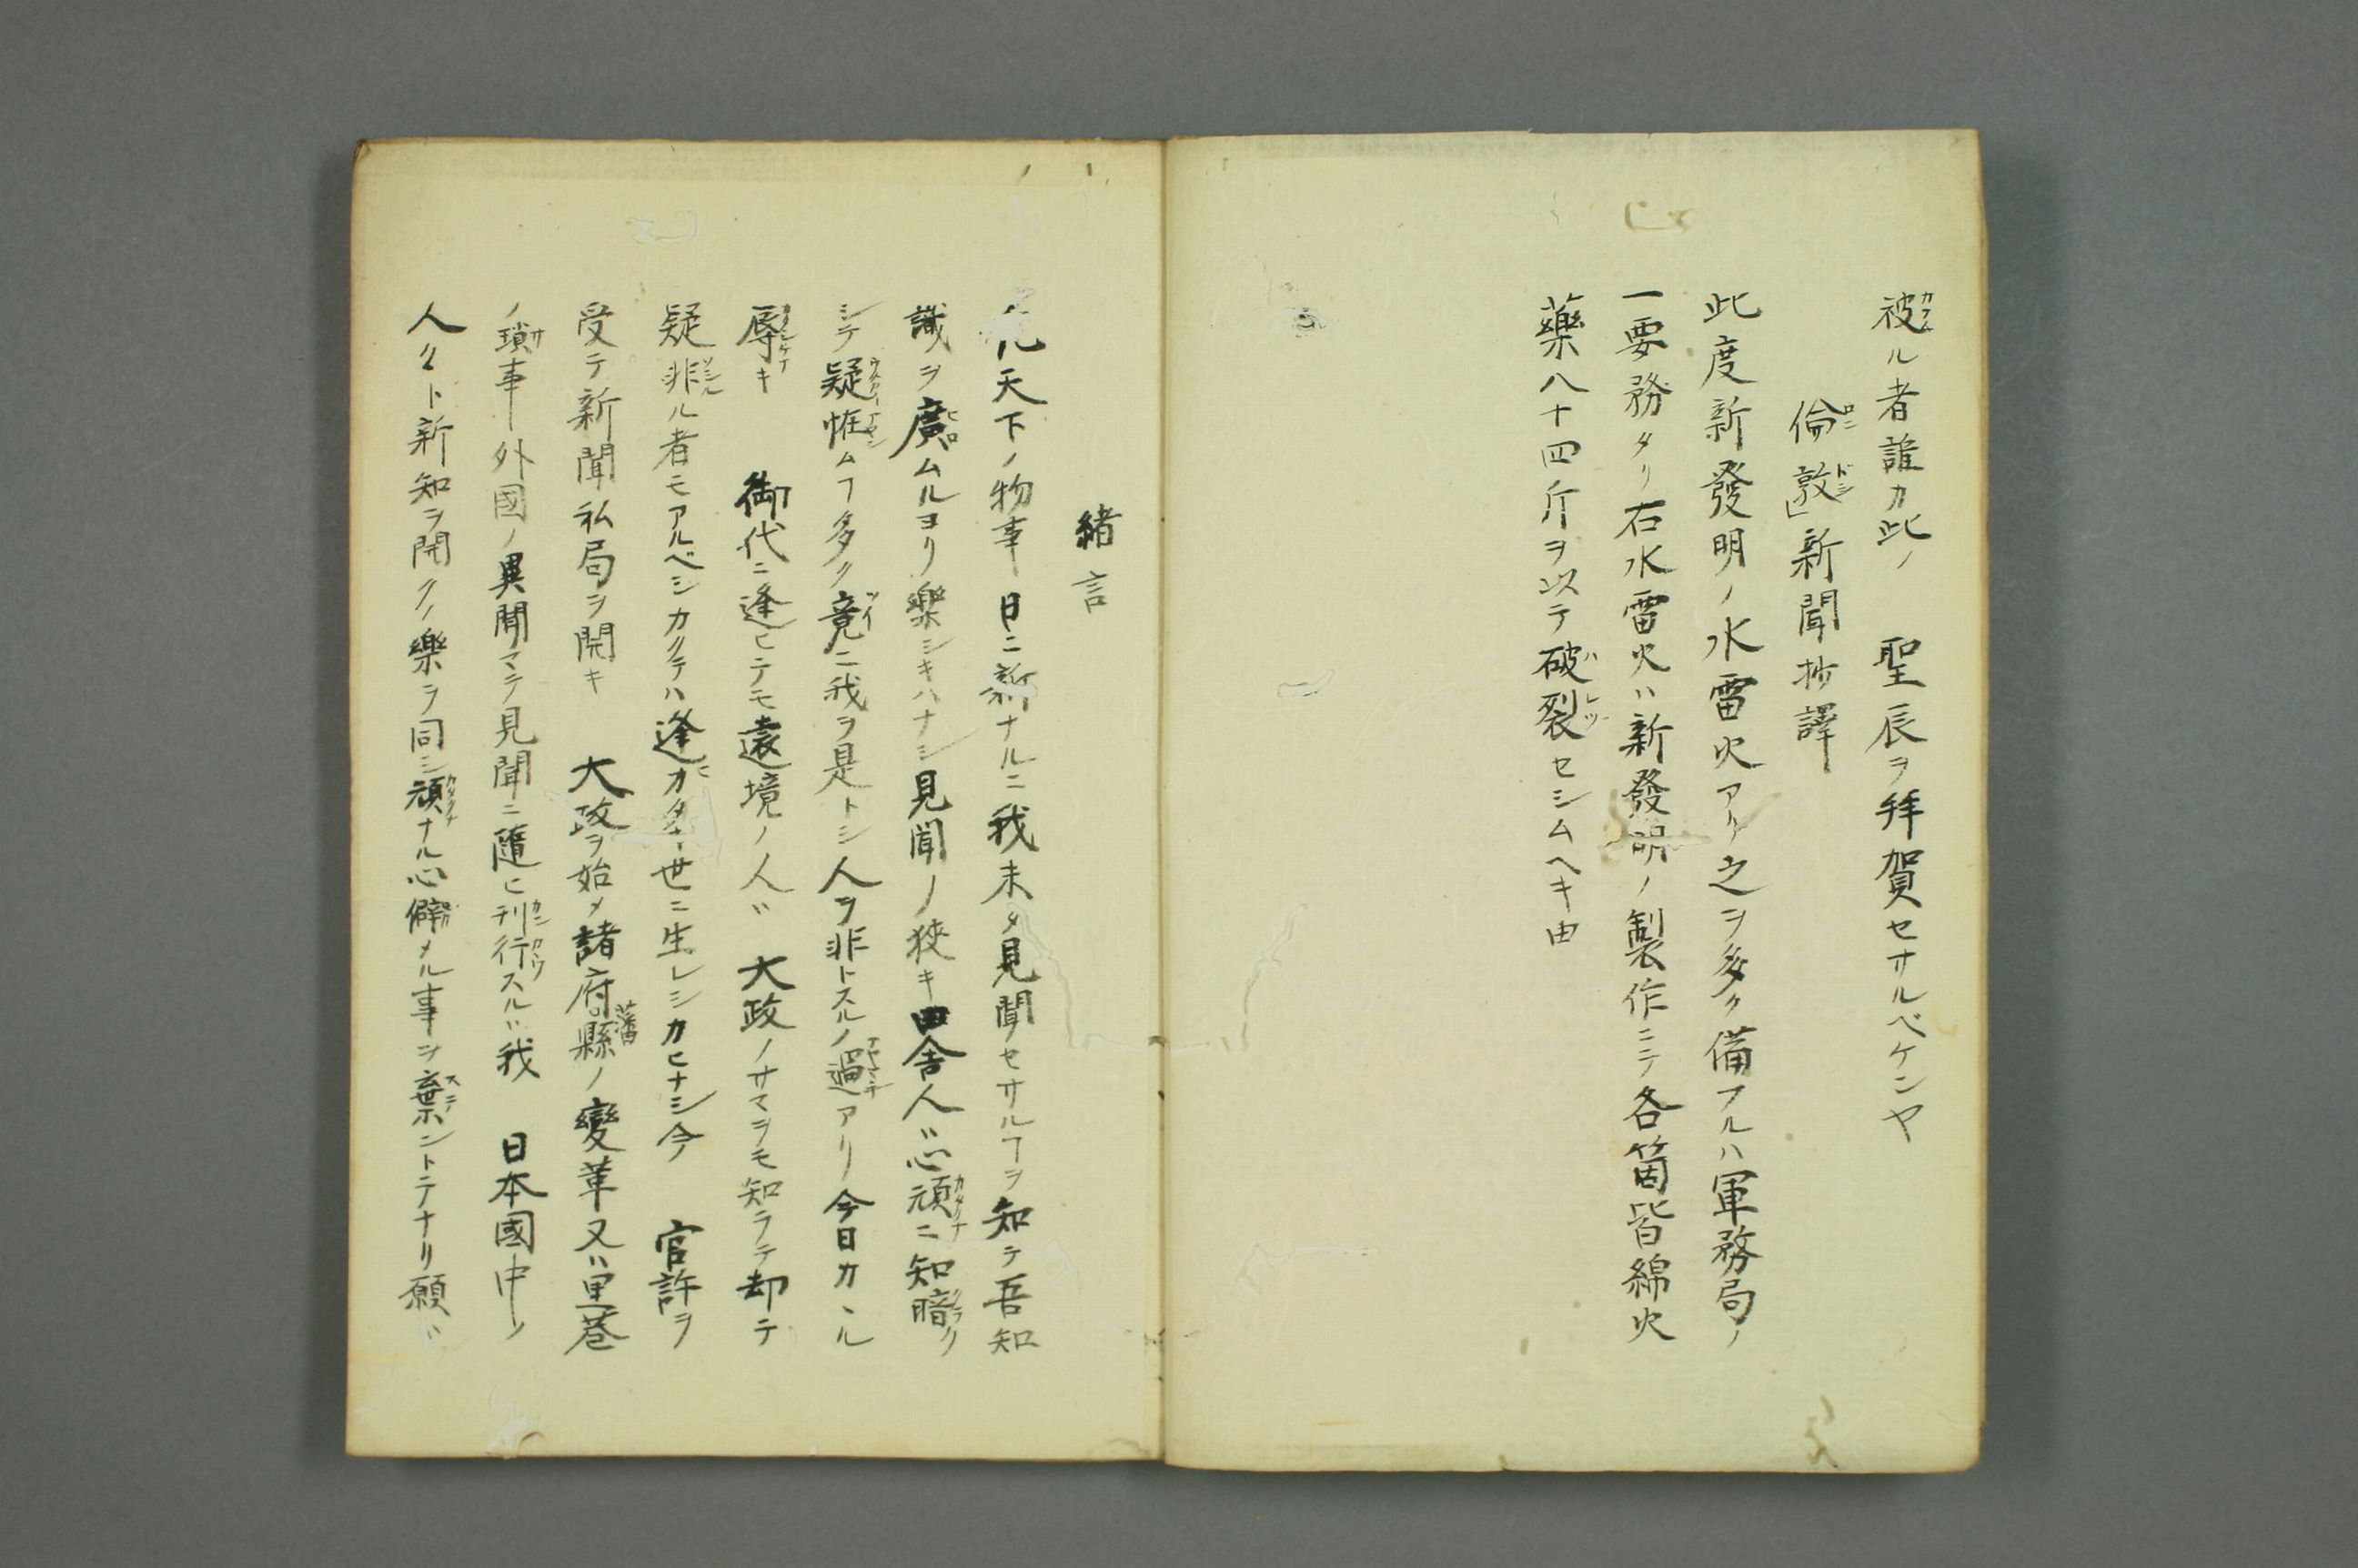 被ル者誰カ此ノ　聖辰ヲ拝賀セサルベケンヤ
倫敦新聞抄譯
此度新發明ノ水雷火アリ之ヲ多ク備フルハ軍務局ノ
一要務タリ右水雷火ハ新發明ノ製作ニテ各箇皆綿火
藥八十四斤ヲ以テ破裂セシムヘキ由
緒言
凡天下ノ物事日ニ新ナルニ我未タ見聞セサルヿヲ知テ吾知
識ヲ廣ムルヨリ樂シキハナシ見聞ノ狹キ田舎人ハ心頑ニ知暗ク
シテ疑恠ムヿ多ク竟ニ我ヲ是トシ人ヲ非トスルノ過アリ今日カヽル
辱キ　御代ニ逢ヒテモ遠境ノ人ハ　大政ノサマヲモ知ラテ却テ
疑非ル者モアルベシカクテハ逢カタキ世ニ生レシカヒナシ今　官許ヲ
受テ新聞私局ヲ開キ　大政ヲ始メ諸府藩縣ノ變革又ハ里巷
ノ瑣事外國ノ異聞マテ見聞ニ隨ヒ刊行スルハ我　日本國中ノ
人々ト新知ヲ開クノ樂ヲ同シ頑ナル心僻メル事ヲ棄ントテナリ願ハ